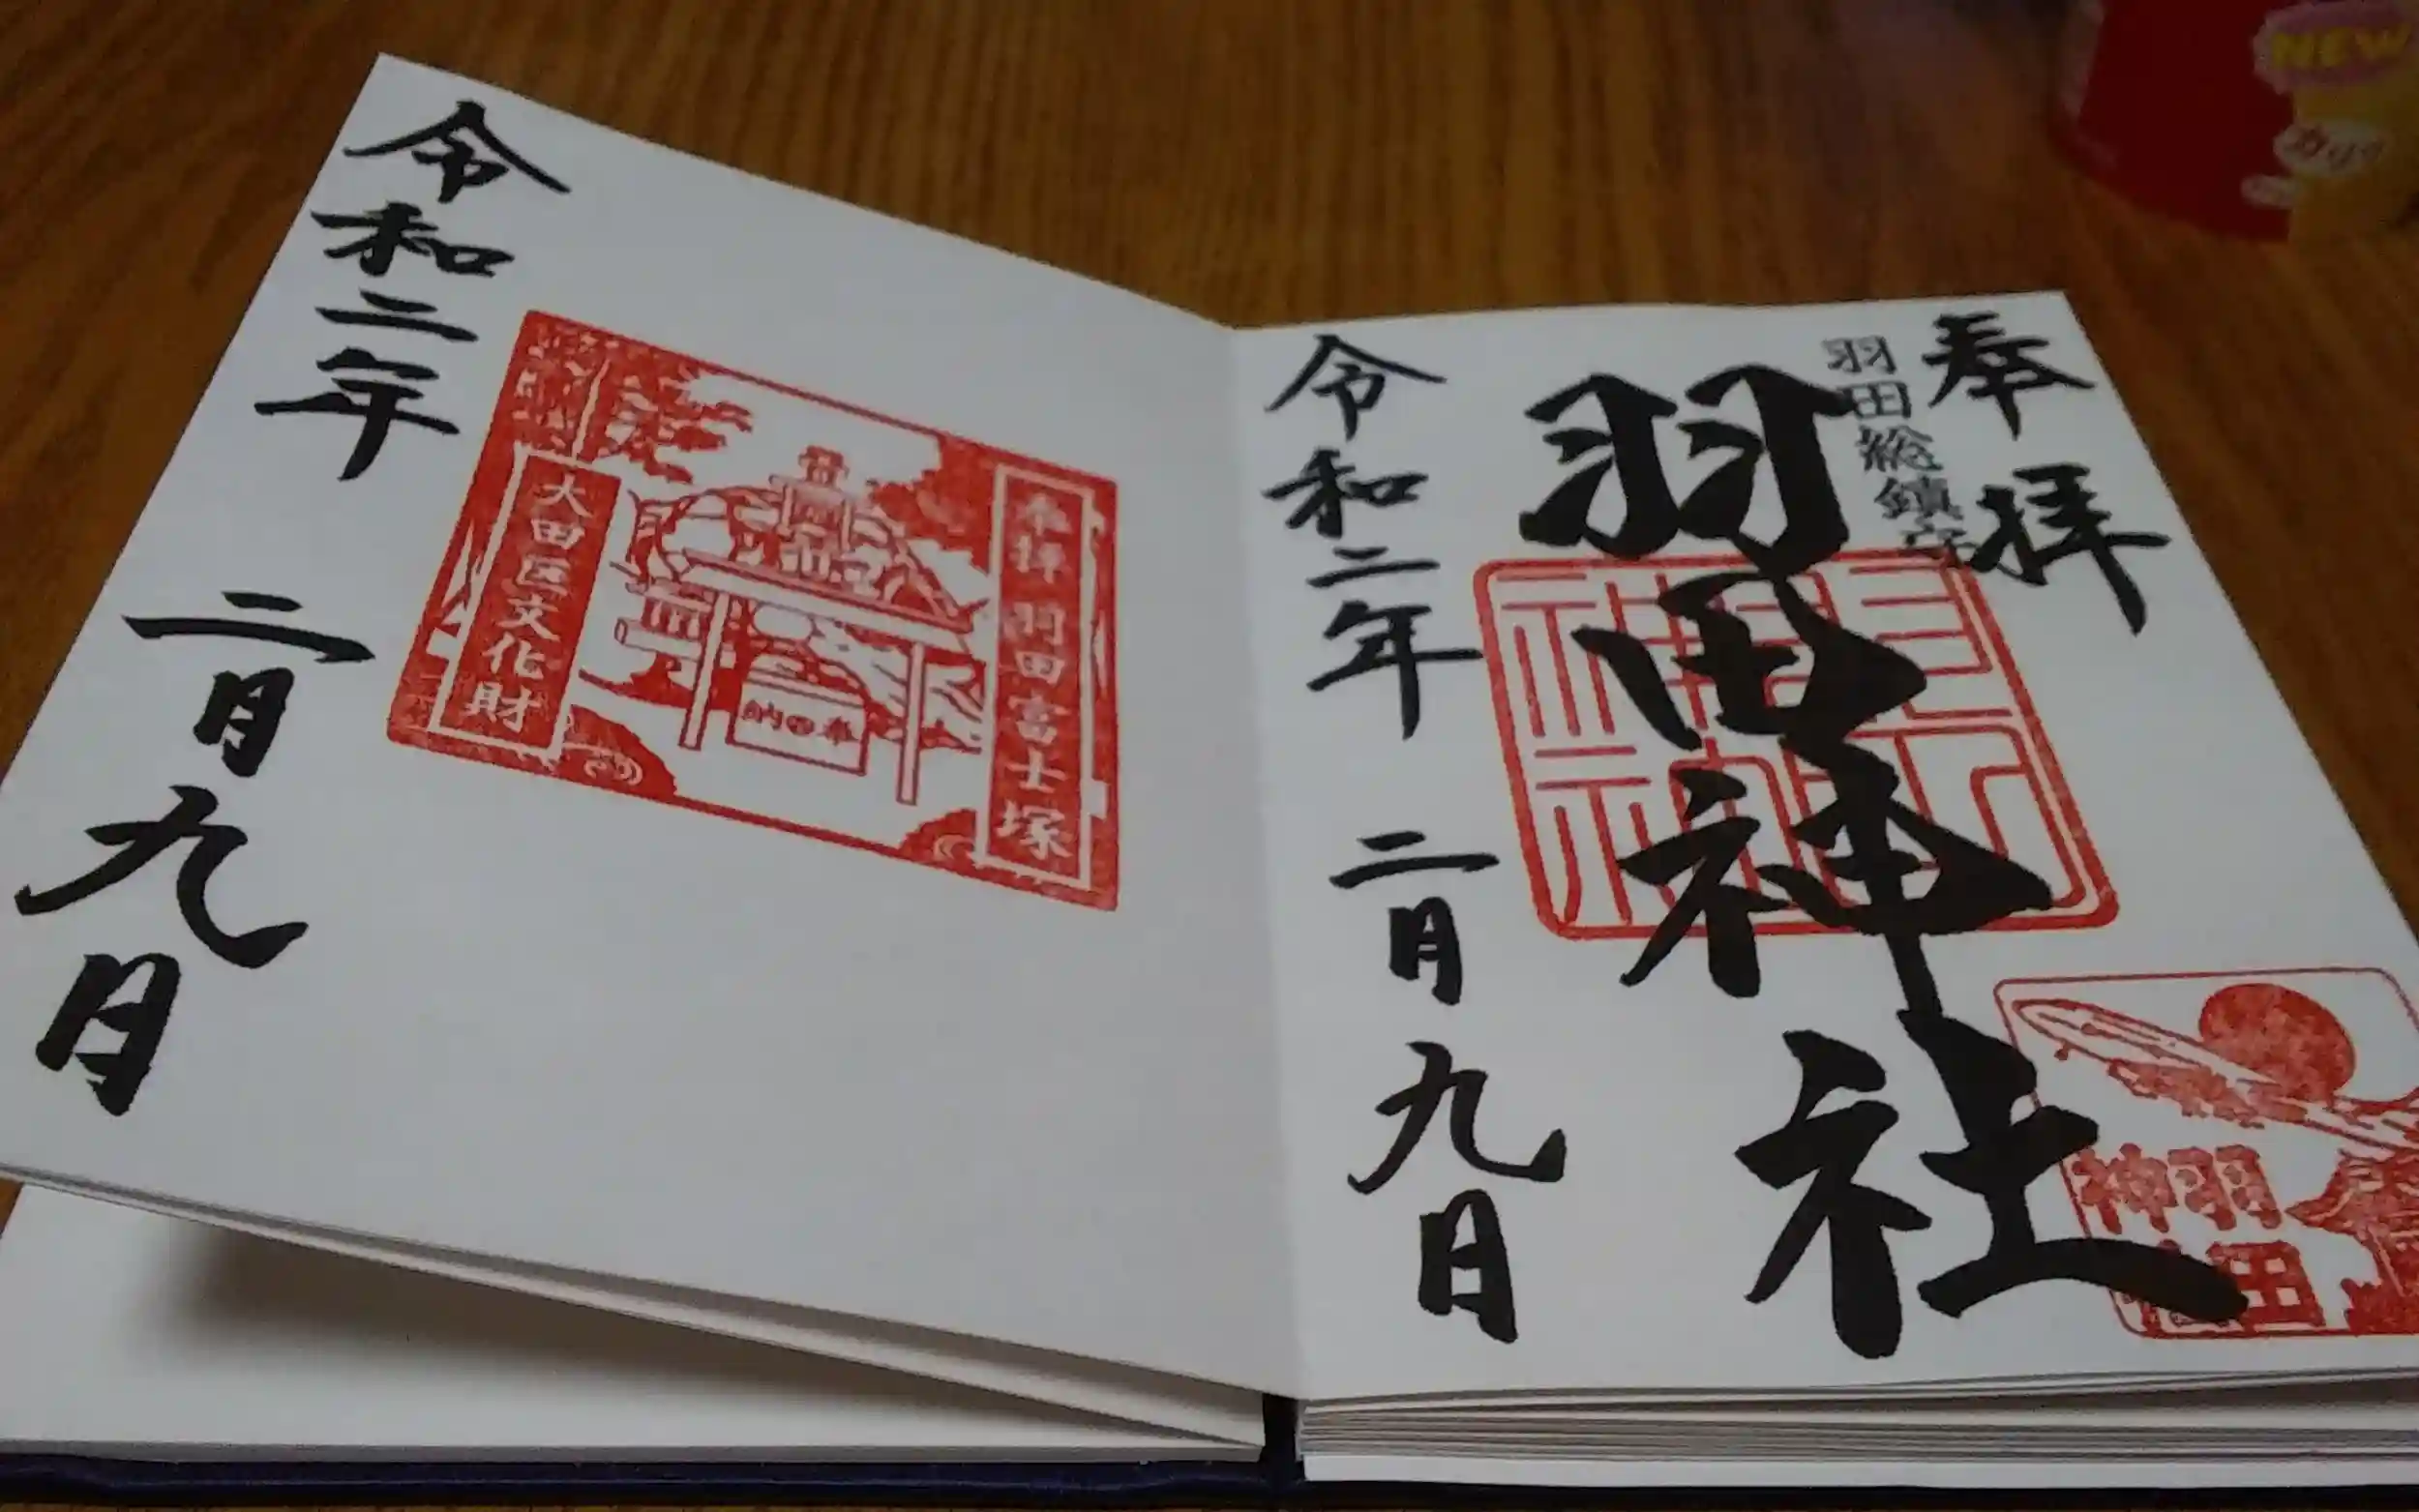 奉拝
羽田総鎮守
羽田神社
令和二年 二月九日
羽田
神社
奉拝 羽田富士塚
奉納
大田区文化財
令和二年 二月九日
NEW